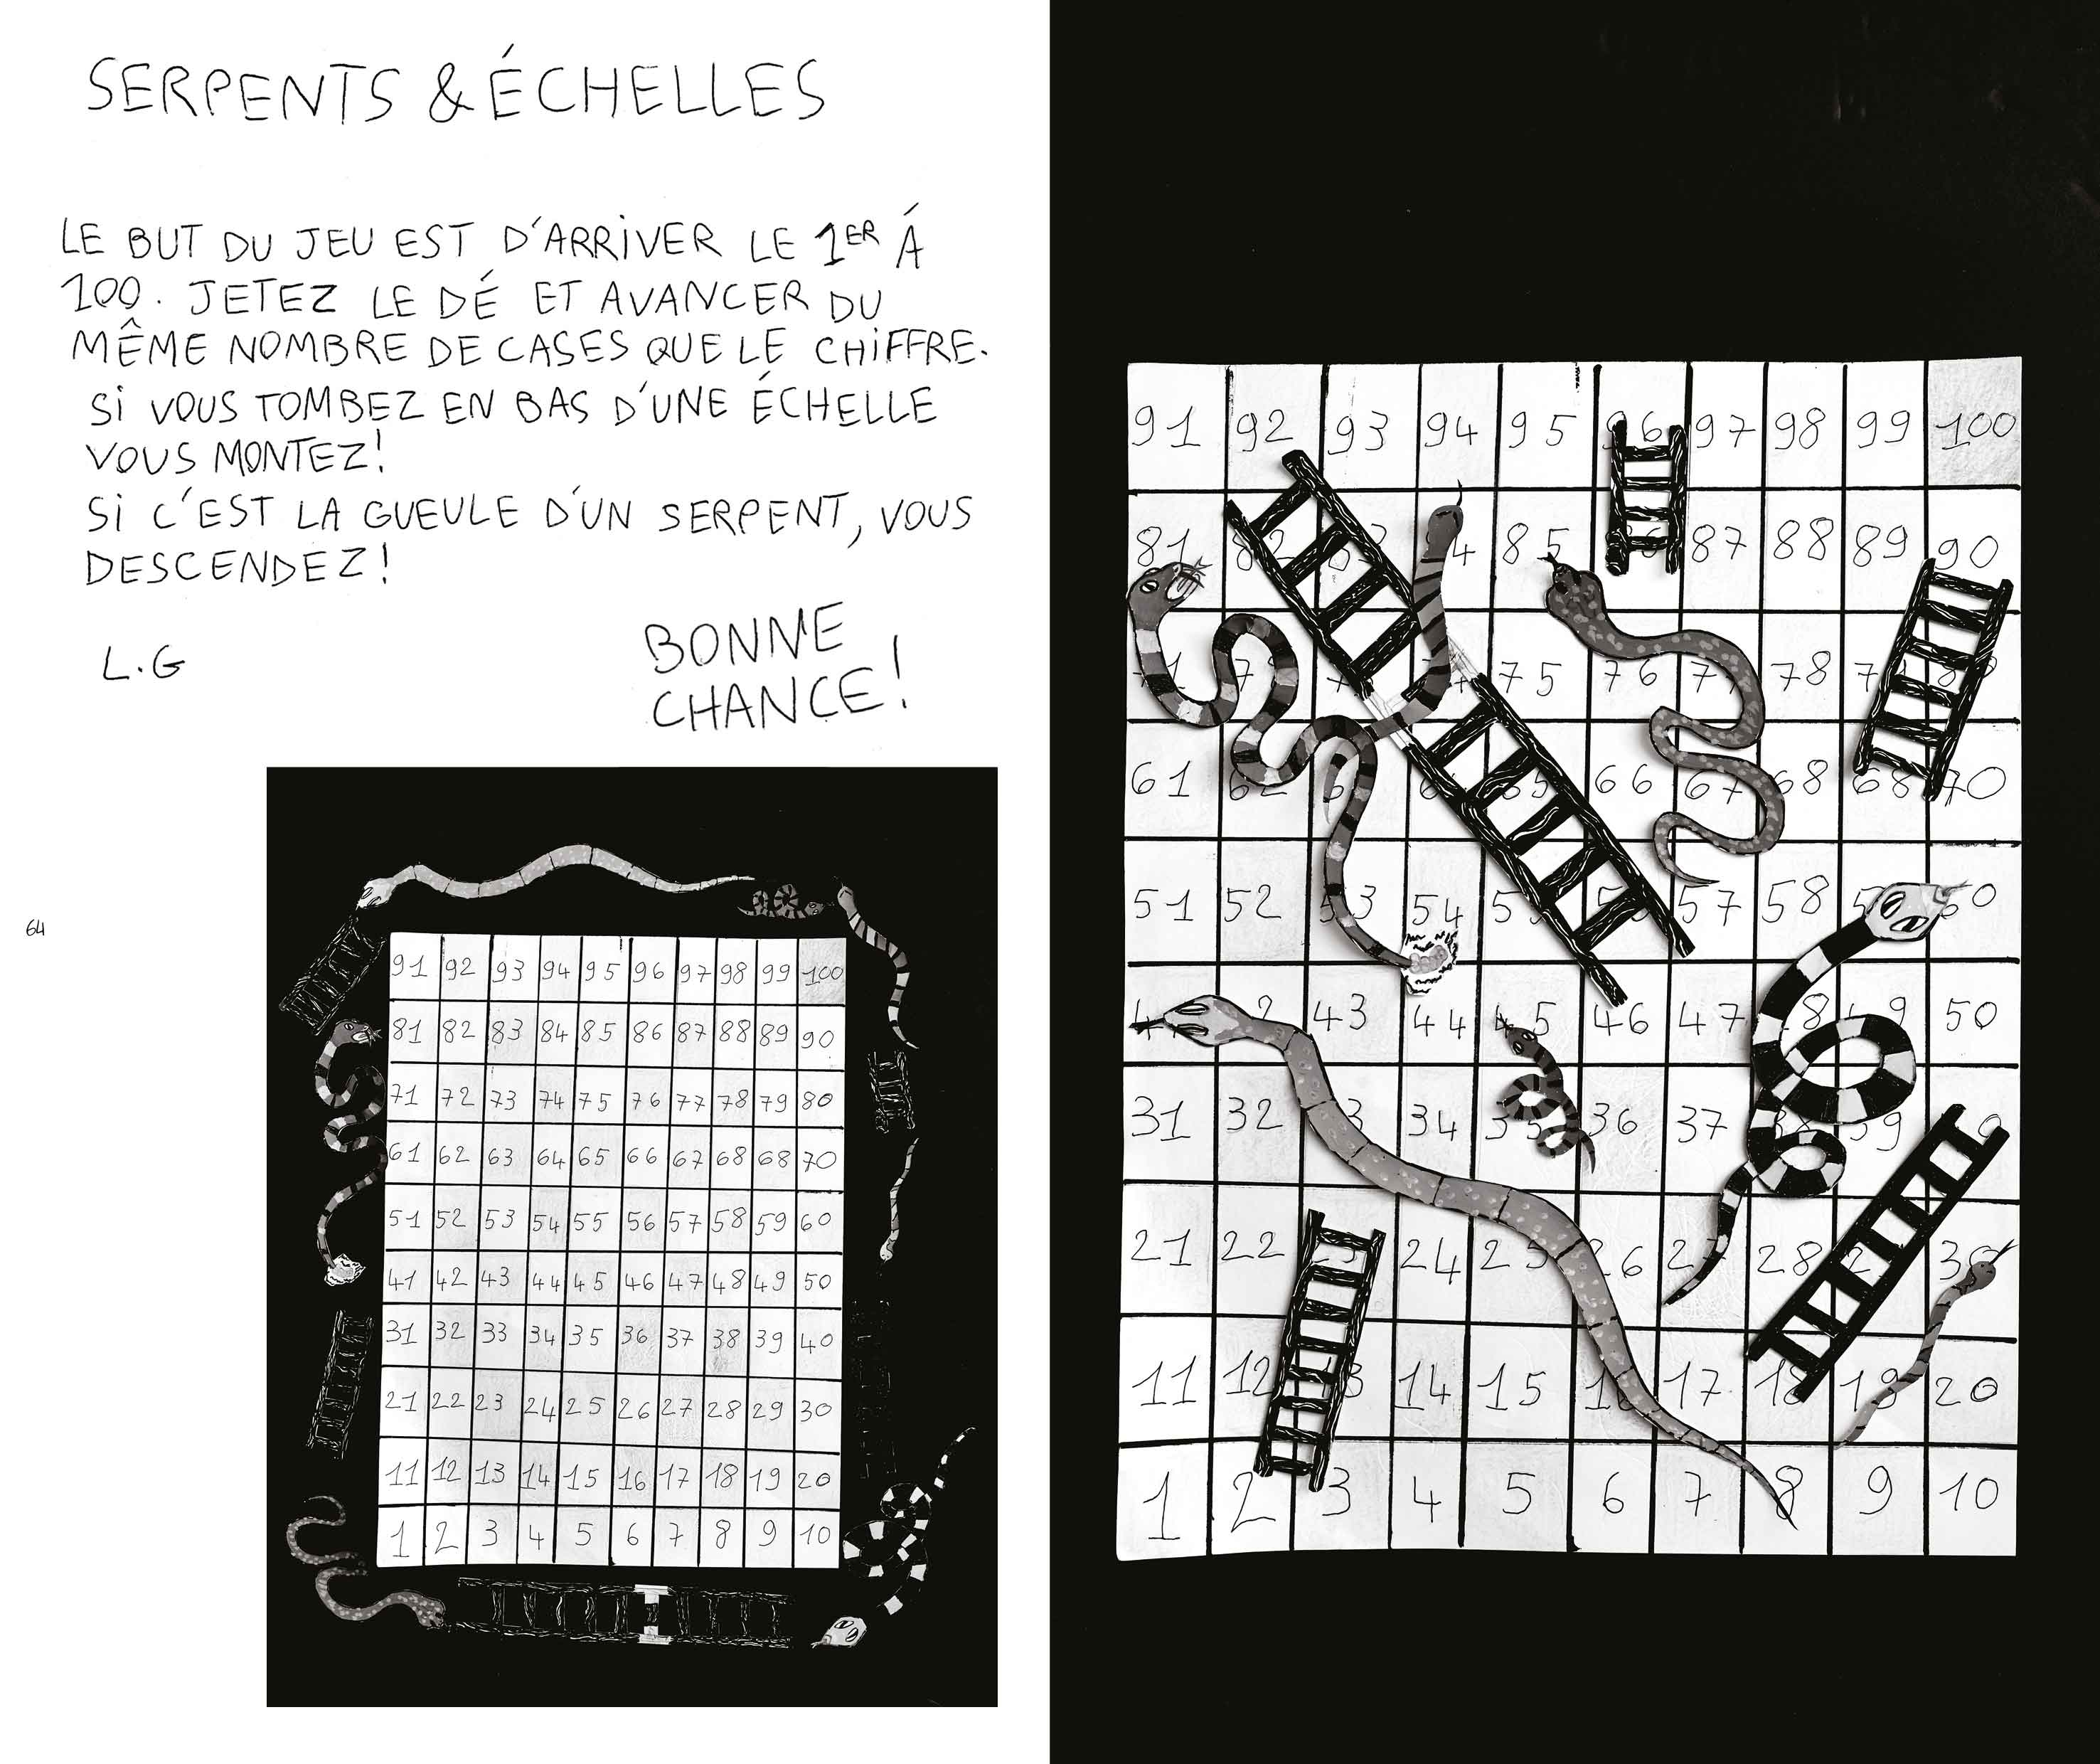 SERPENTS & ÉCHELLES
LE BUT DU JEU EST D'ARRIVER LE 1ER Á
100. JETEZ LE DÉ ET AVANCER DU
MÊME NOMBRE DE CASES QUE LE CHIFFRE.
SI VOUS TOMBEZ EN BAS D'UNE ÉCHELLE
VOUS MONTEZ!
SI C'EST LA GUEULE D'UN SERPENT, VOUS
DESCENDEZ!
L.G
BONNE
CHANCE!
64
91 92 93 94 95 96 97 98 99 100
81 82 83 84 85 86 87 88 89 90
71 72 73 74 75 76 77 78 79 80
61 62 63 64 65 66 67 68 68 70
51 52 53 54 55 56 57 58 59 60
41 42 43 44 45 46 47 48 49 50
31 32 33 34 35 36 37 38 39 40
21 22 23 24 25 26 27 28 29 30
11 12 13 14 15 16 17 18 19 20
1 2 3 4 5 6 7 8 9 10
91 92 93 94 95 96 97 98 99 100
81 82 85 87 88 89 90
75 76 77 78
61 62 65 66 67 68 68 70
51 52 53 54 57 58
43 44 45 46 47 50
31 32 34 35 36 37 39
21 22 24 25 26 28 30
11 12 14 15 16 17 18 19 20
1 2 3 4 5 6 7 8 9 10